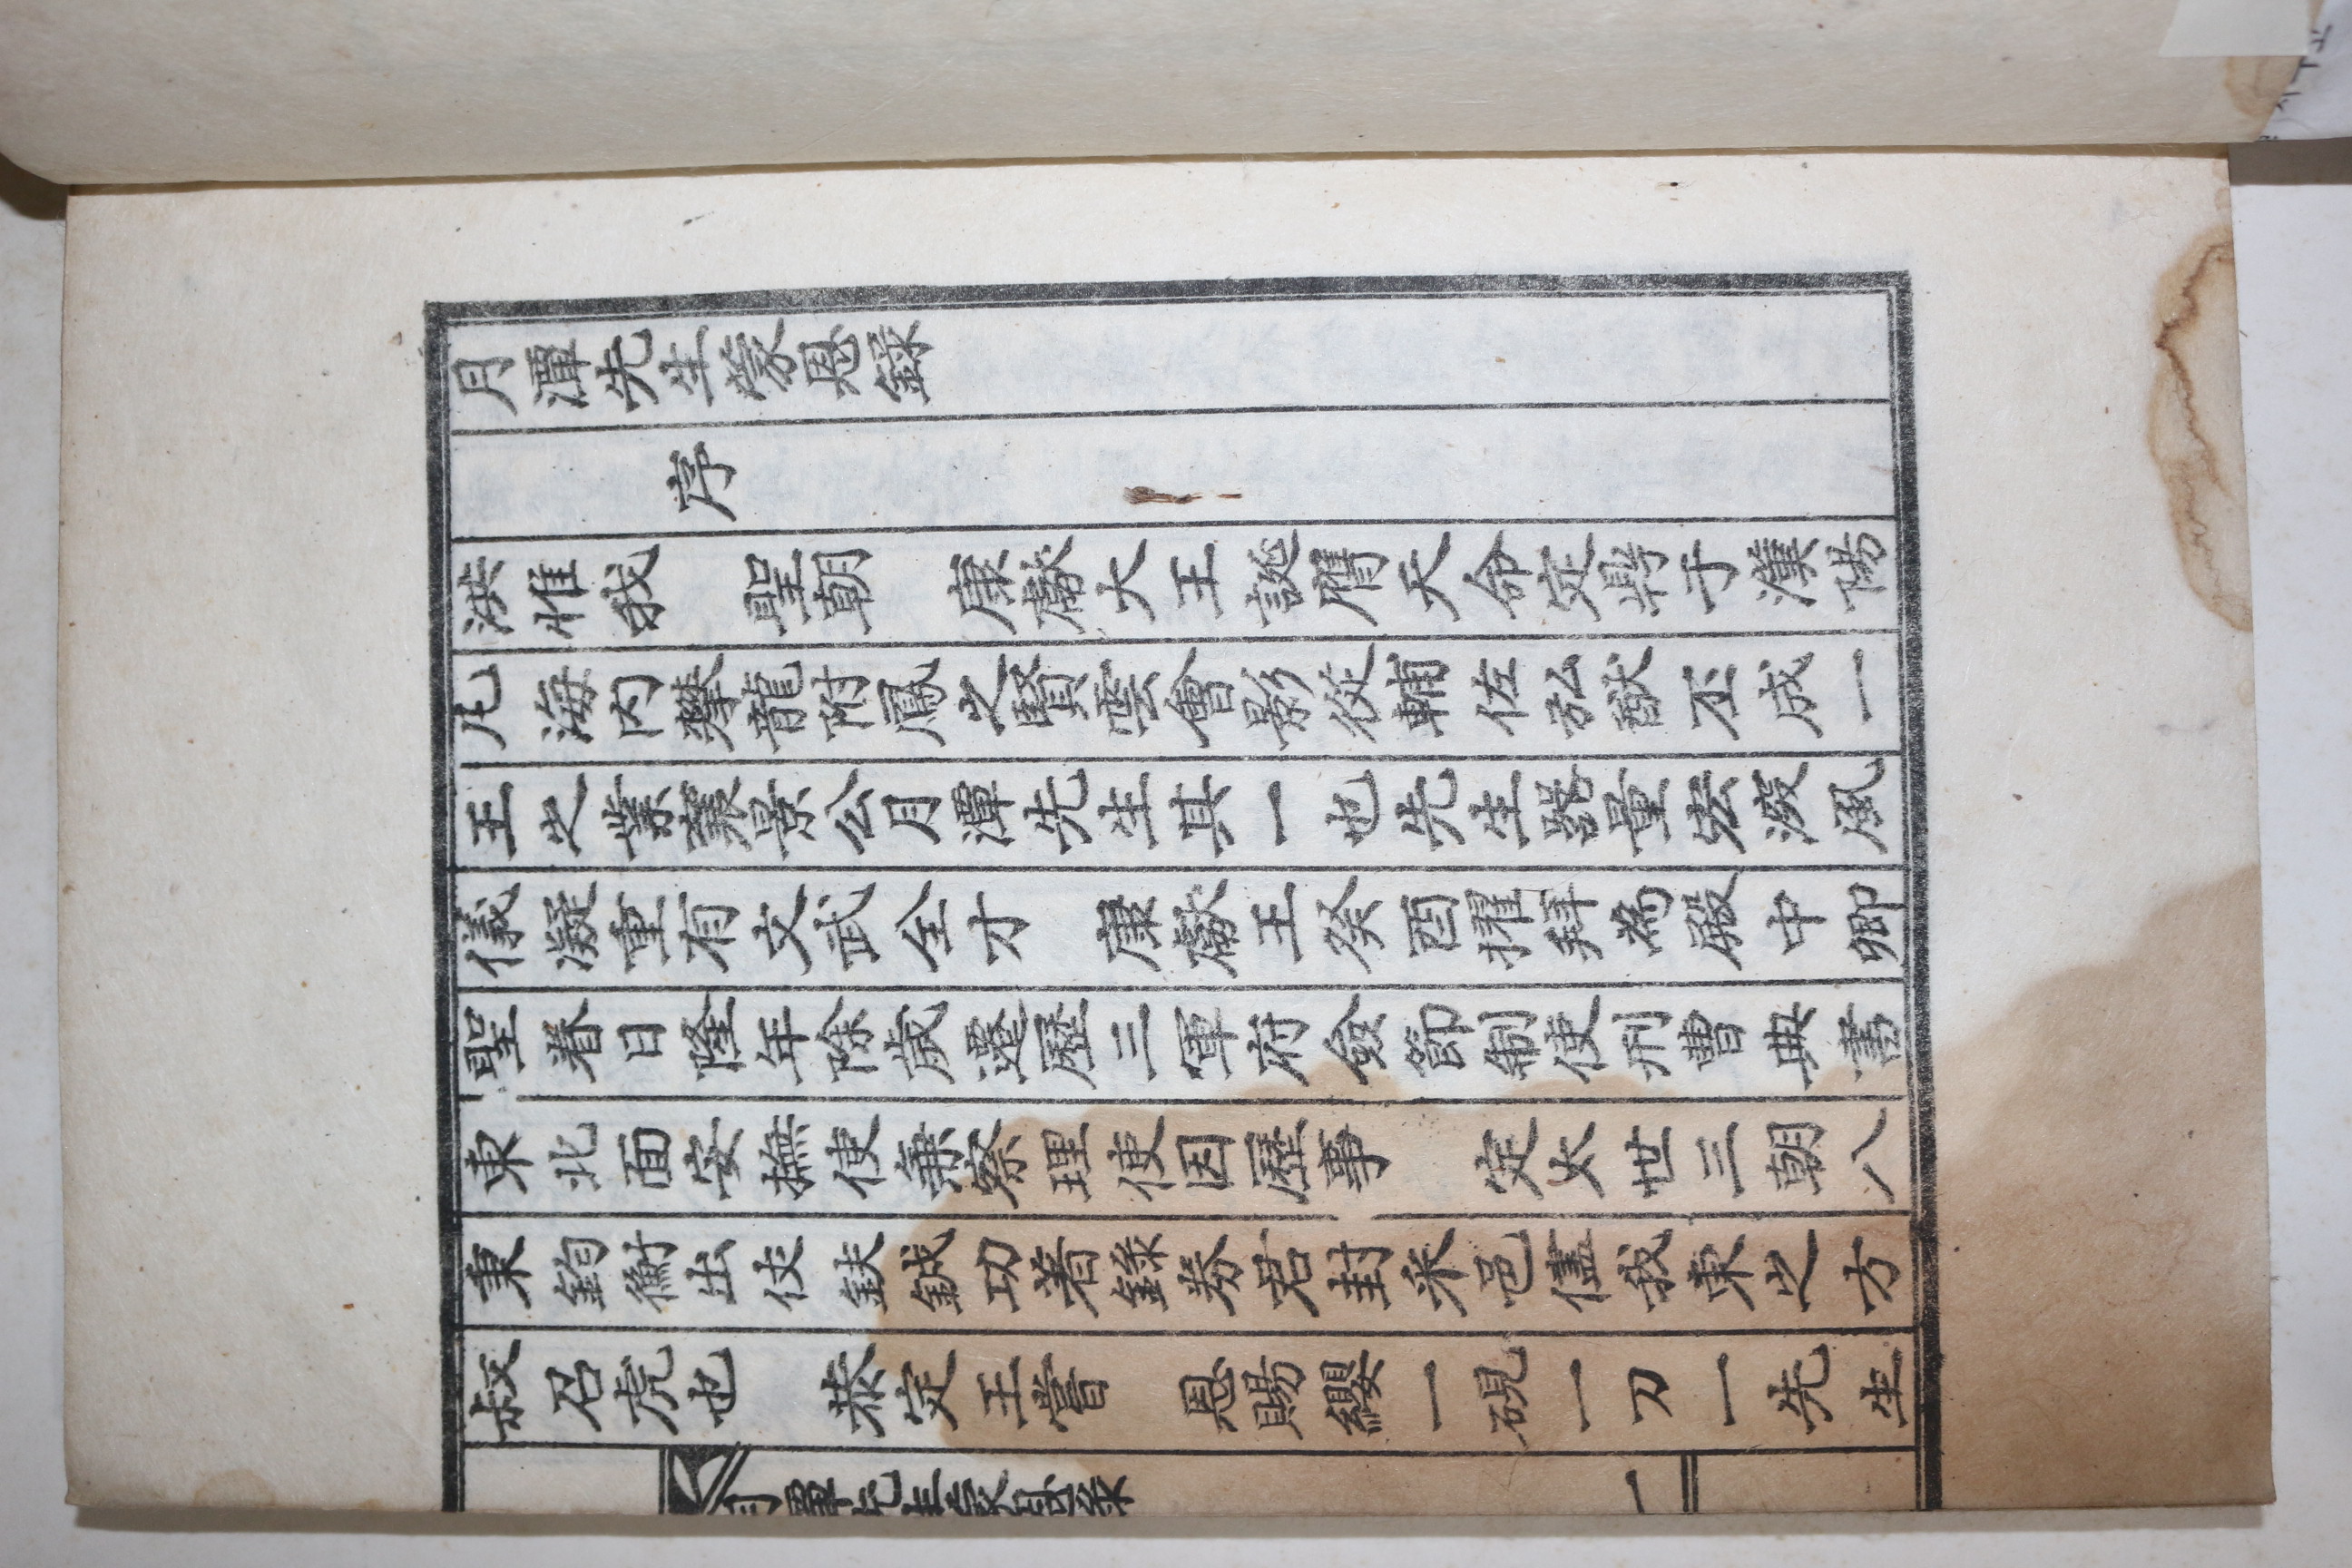 月潭先生蒙恩錄
序
洪惟我 聖朝 康獻大王誕膺天命定鼎于漢陽
凡海內攀龍附鳳之賢雲會影從輔佐弘猷丕成一
王之業襄景公月潭先生其一也先生器量宏深風
儀凝重有文武全才 康獻王癸酉擢拜為殿中卿
聖眷日隆年除歲遷歷三軍府僉節制使刑曹典書
東北面安撫使兼察理使因歷事 定太世三朝八
秉鈞衡出仗鈇鉞功著錄券君封采邑儘我東之方
叔召虎也 恭定王嘗 恩賜纓一硯一刀一先生
月潭先生蒙恩錄
一